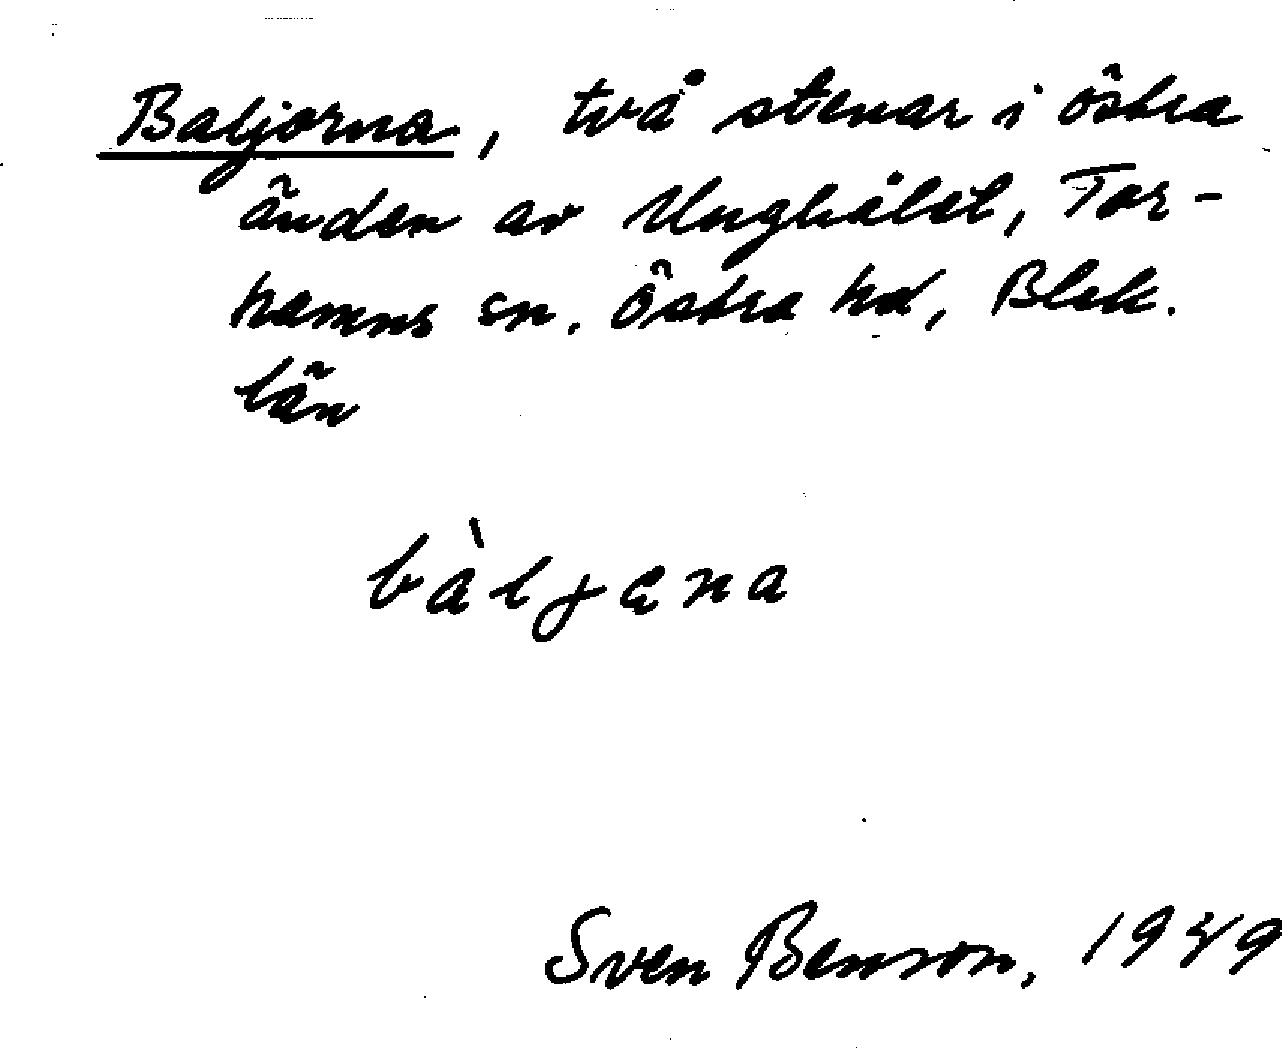 Baljorna, två stenar i östra
änden av Unghålet, Tor-
hamns sn. Östra hd, Blek.
län
bàljena
Sven Benson, 1949